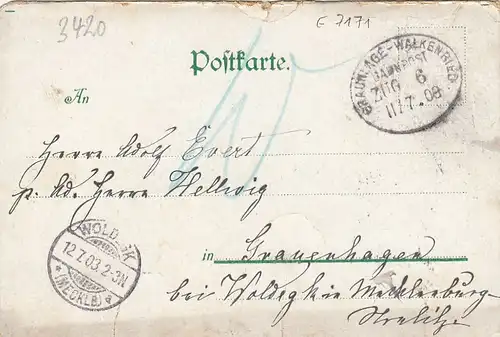 3420
E 7171
Postkarte.
BRAUNLAGE-WALKENRIED.
BAHNPOST
ZUG 6
11.7.03
An
Herrn Adolf Evert
p. Ad. Herrn Hellwig
in Grauenhagen
bei Woldegk in Mecklenburg-
Strelitz.
WOLDEGK
12.7.03.2-3N
*(MECKLB)*